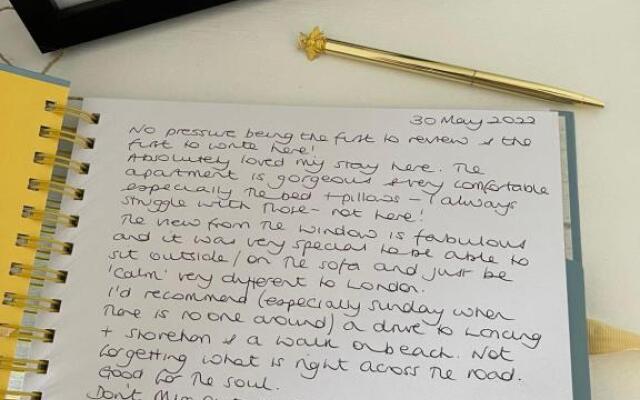 30 May 2022
No pressure being the first to review & the
first to write here!
Absolutely loved my stay here. The
apartment is gorgeous & very comfortable
especially the bed + pillows - I always
struggle with those - not here!
The view from the window is fabulous
and it was very special to be able to
sit outside / on the sofa and just be
'calm' very different to London.
I'd recommend (especially Sunday when
there is no one around) a drive to Lancing
+ Shoreham & a walk on beach. Not
forgetting what is right across the road.
Good for the soul.
Don't